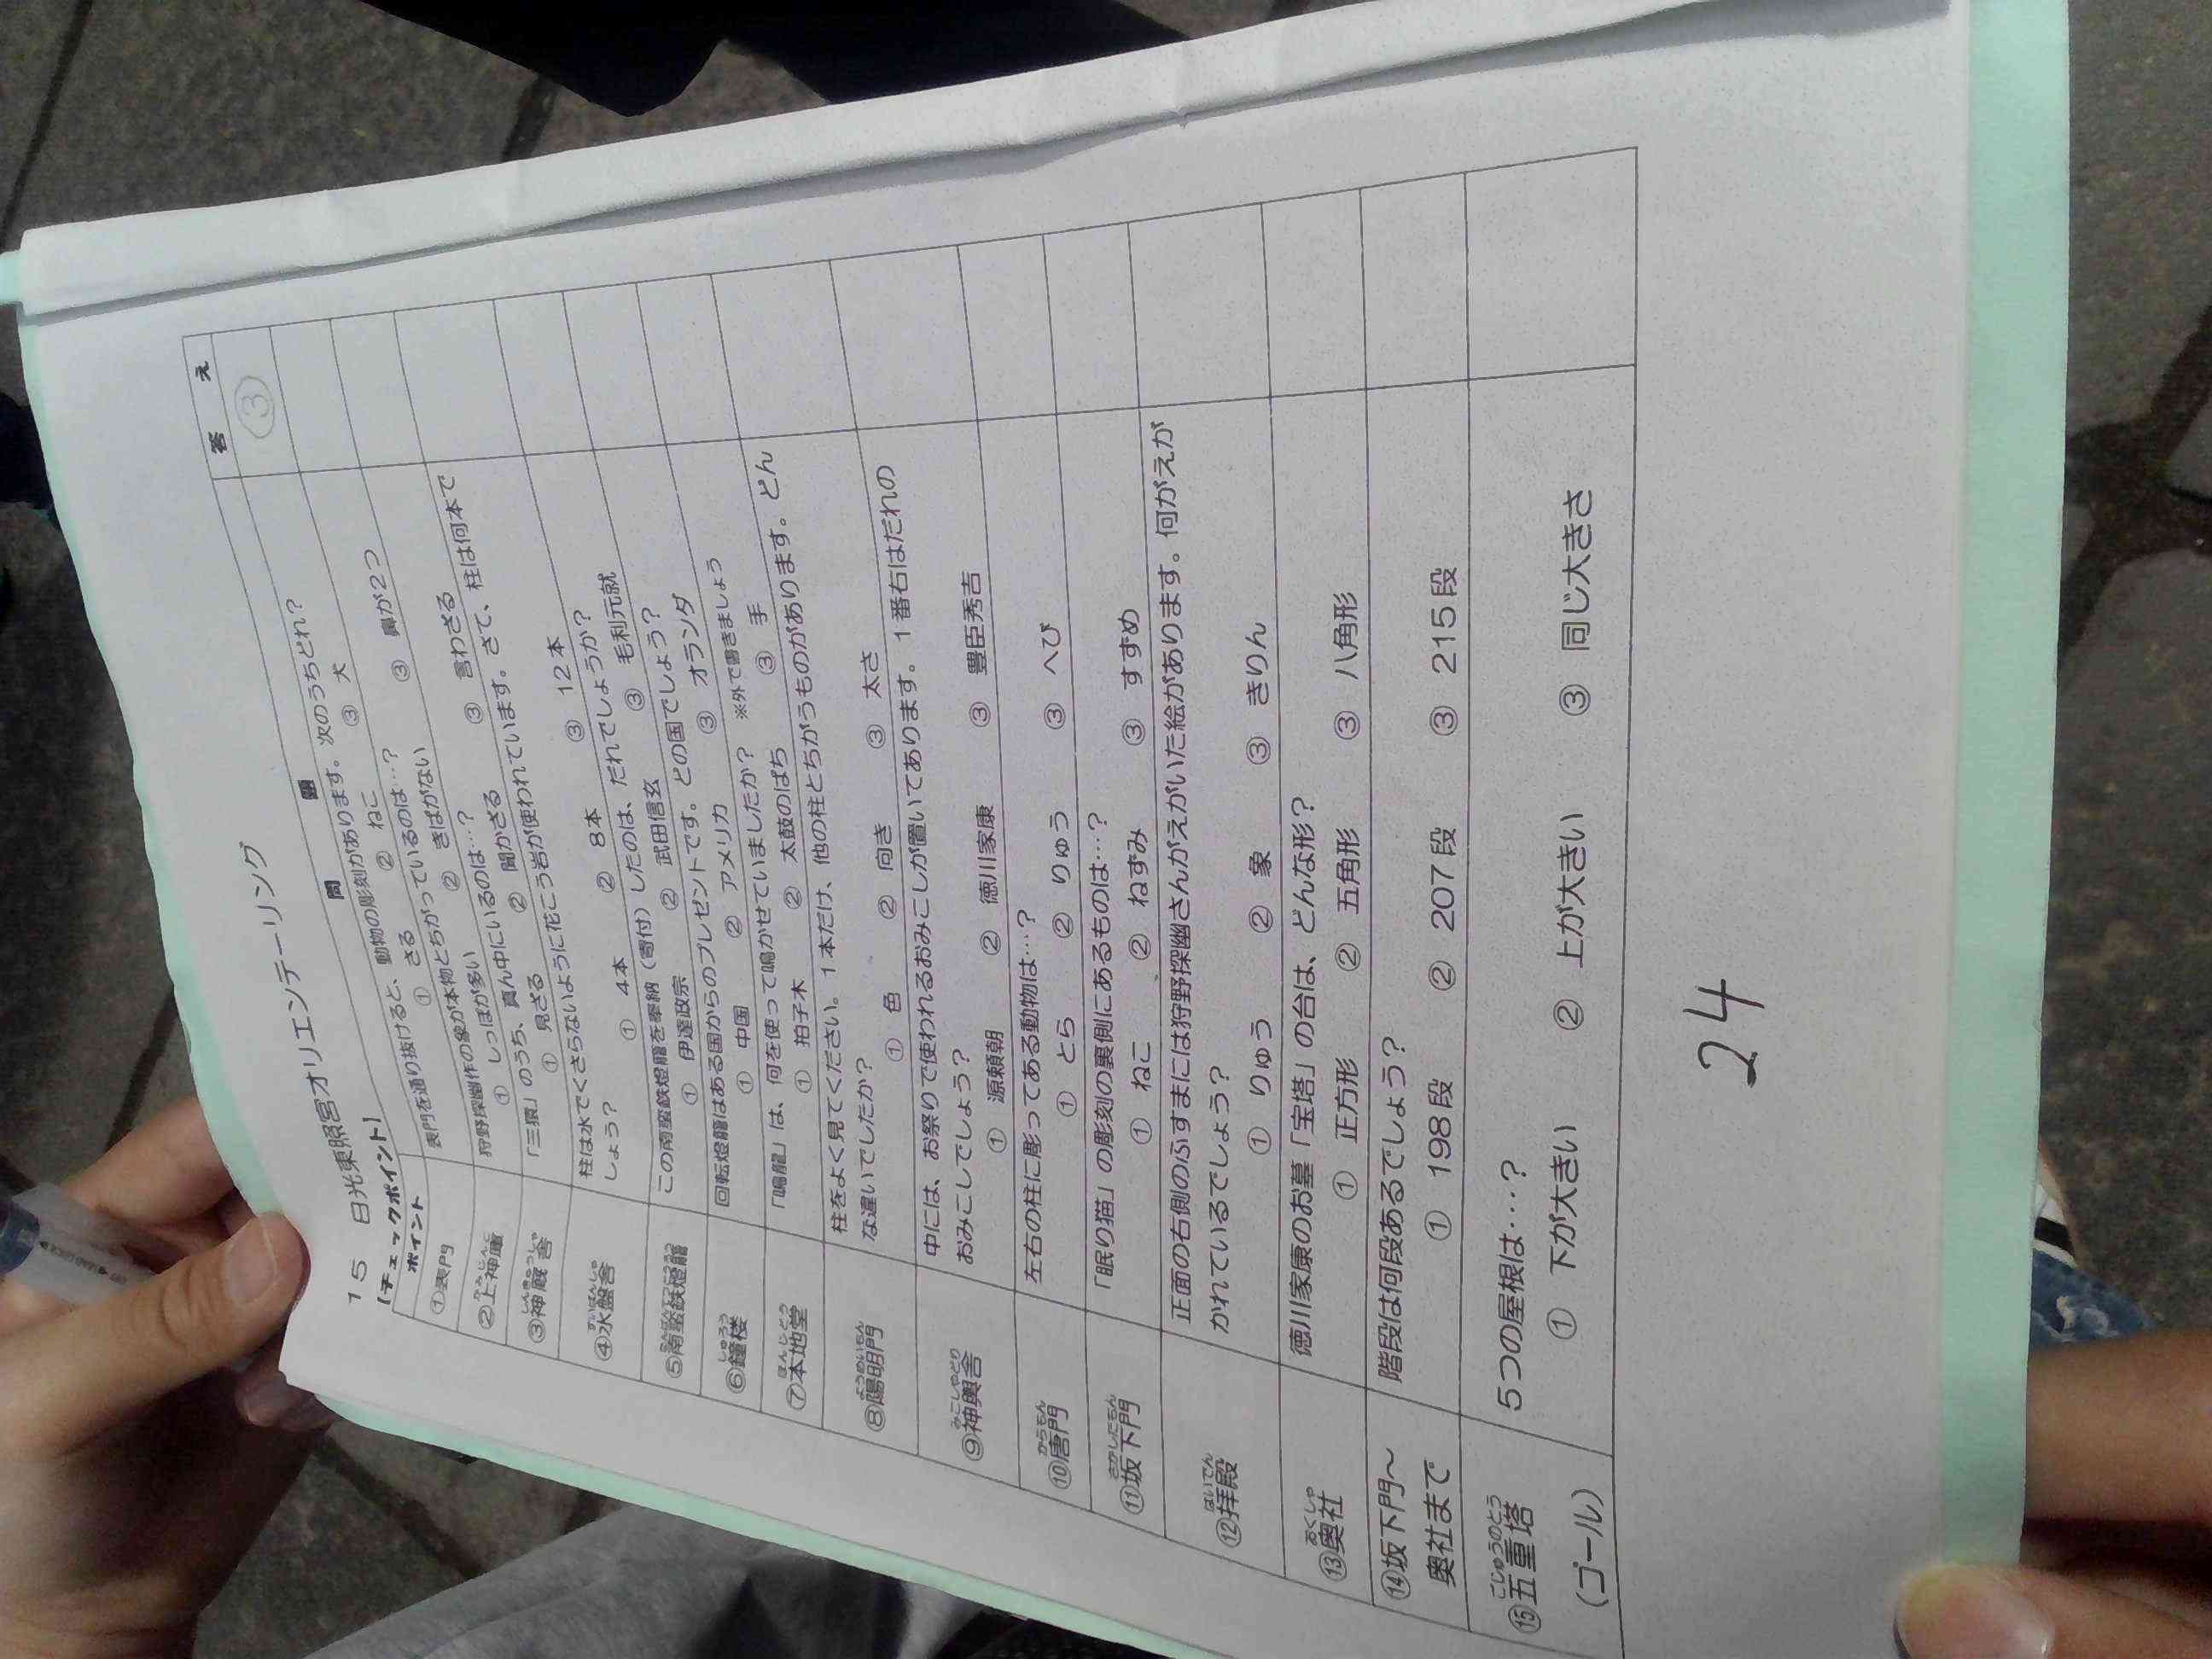 15 日光東照宮オリエンテーリング
【チェックポイント】
ポイント 問 題 答 え
①表門 表門を通り抜けると、動物の彫刻があります。次のうちどれ? ③
① さる ② ねこ ③ 犬
②上神庫 狩野探幽作の象が本物とちがっているのは…?
① しっぽが多い ② きばがない ③ 鼻が2つ
③神厩舎 「三猿」のうち、真ん中にいるのは…?
① 見ざる ② 聞かざる ③ 言わざる
④水盤舎 柱は水でくさらないように花こう岩が使われています。さて、柱は何本で
しょう? ① 4本 ② 8本 ③ 12本
⑤南蛮鉄燈籠 この南蛮鉄燈籠を奉納(寄付)したのは、だれでしょうか?
① 伊達政宗 ② 武田信玄 ③ 毛利元就
⑥鐘楼 回転燈籠はある国からのプレゼントです。どの国でしょう?
① 中国 ② アメリカ ③ オランダ
⑦本地堂 「鳴龍」は、何を使って鳴かせていましたか? ※外で書きましょう
① 拍子木 ② 太鼓のばち ③ 手
⑧陽明門 柱をよく見てください。1本だけ、他の柱とちがうものがあります。どん
な違いでしたか? ① 色 ② 向き ③ 太さ
⑨神輿舎 中には、お祭りで使われるおみこしが置いてあります。1番右はだれの
おみこしでしょう?
① 源頼朝 ② 徳川家康 ③ 豊臣秀吉
⑩唐門 左右の柱に彫ってある動物は…?
① とら ② りゅう ③ へび
⑪坂下門 「眠り猫」の彫刻の裏側にあるものは…?
① ねこ ② ねずみ ③ すずめ
⑫拝殿 正面の右側のふすまには狩野探幽さんがえがいた絵があります。何がえが
かれているでしょう?
① りゅう ② 象 ③ きりん
⑬奥社 徳川家康のお墓「宝塔」の台は、どんな形?
① 正方形 ② 五角形 ③ 八角形
⑭坂下門~ 階段は何段あるでしょう?
奥社まで ① 198段 ② 207段 ③ 215段
⑮五重塔 5つの屋根は…?
(ゴール) ① 下が大きい ② 上が大きい ③ 同じ大きさ
24